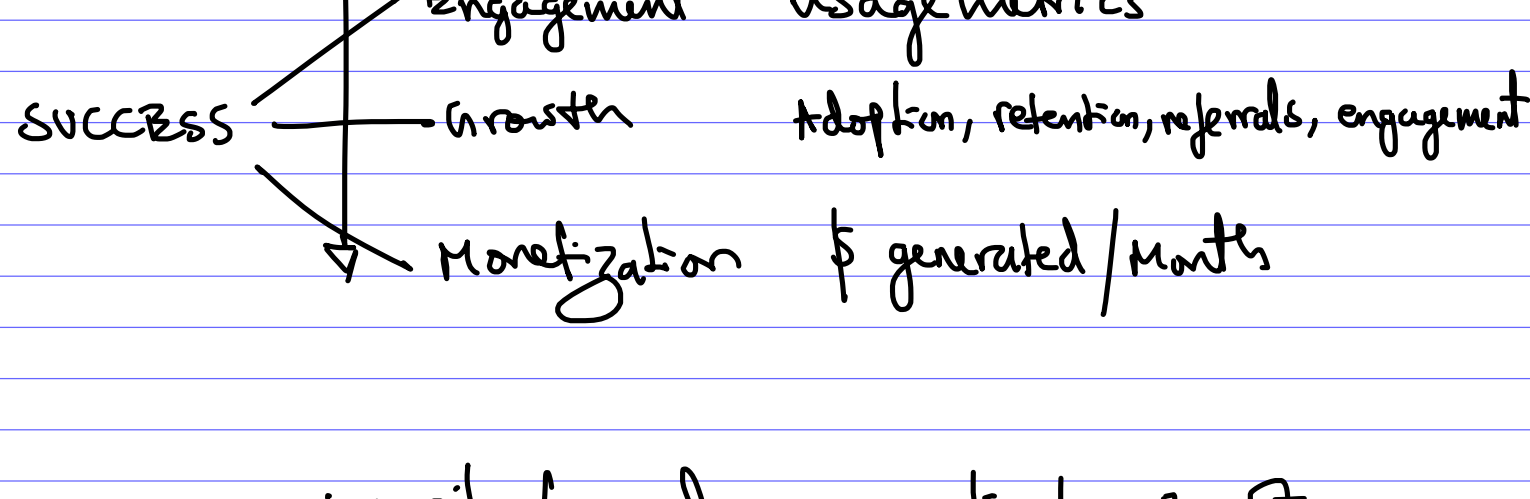 Engagement Usage metrics
SUCCESS Growth Adoption, retention, referrals, engagement
Monetization $ generated / Month